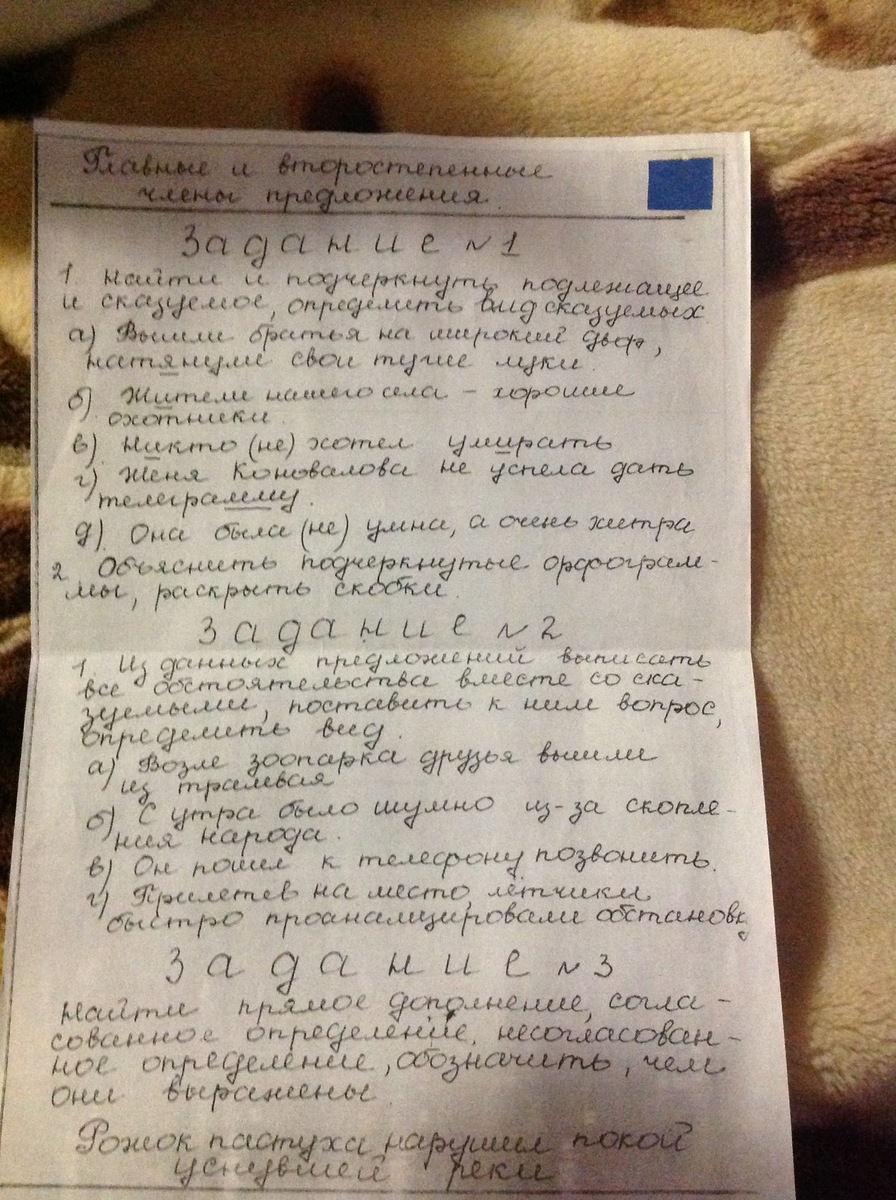 Главные и второстепенные
члены предложения.
Задание №1
1 Найти и подчеркнуть подлежащее
и сказуемое, определить вид сказуемых
а) Вышли братья на широкий двор,
натянули свои тугие луки.
б) Жители нашего села - хорошие
охотники.
в) Никто (не) хотел умирать
г) Женя Коновалова не успела дать
телеграмму.
д) Она была (не) умна, а очень хитра
2 Объяснить подчеркнутые орфограм-
мы, раскрыть скобки.
Задание №2
1 Из данных предложений выписать
все обстоятельства вместе со ска-
зуемыми, поставить к ним вопрос,
определить вид.
а) Возле зоопарка друзья вышли
из трамвая
б) С утра было шумно из-за скопле-
ния народа.
в) Он пошел к телефону позвонить.
г) Прилетев на место, лётчики
быстро проанализировали обстановк
Задание №3
Найти прямое дополнение, согла-
сованное определение, несогласован-
ное определение, обозначить, чем
они выражены.
Рожок пастуха нарушил покой
уснувшей реки